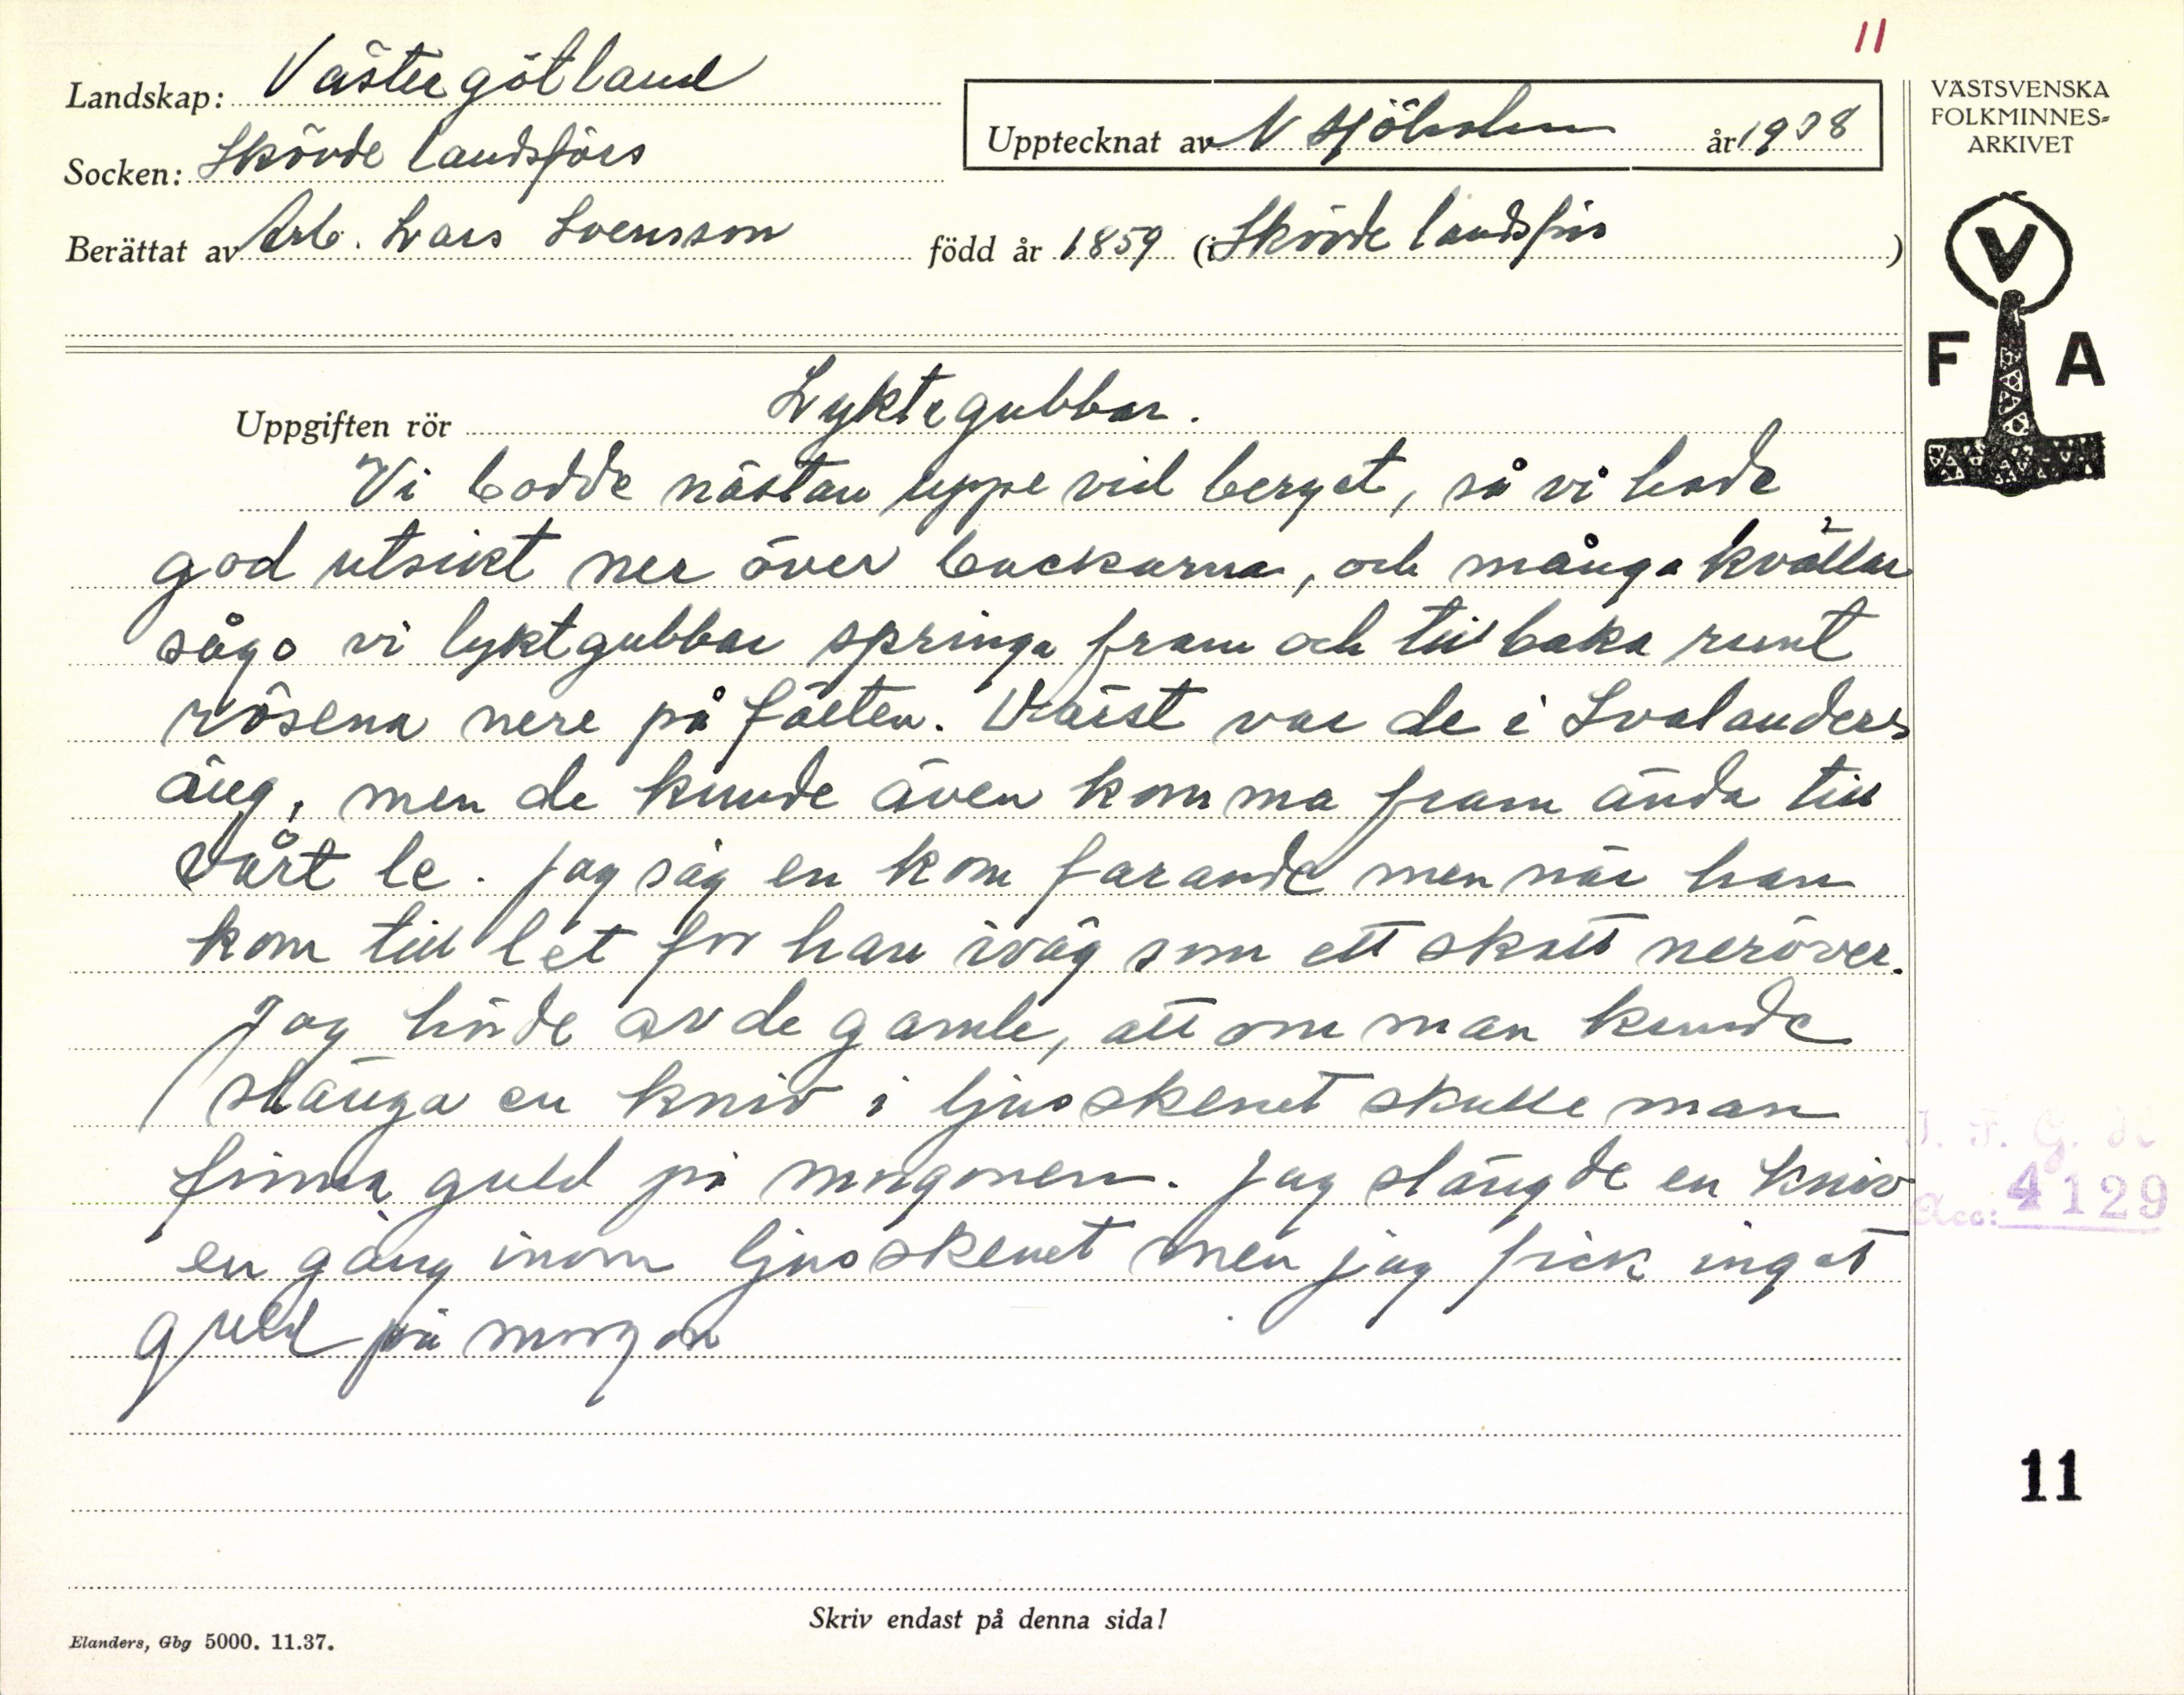 11
Landskap: Västergötland
Socken: Skövde landsförs
Berättat av Arb. Lars Svensson född år 1859 (i Skövde landsförs)
Upptecknat av N Sjöholm år 1938
VÄSTSVENSKA
FOLKMINNES-
ARKIVET
V
F A
Uppgiften rör Lyktegubbar.
Vi bodde nästan uppe vid berget, så vi hade
god utsikt ner över backarna, och många kvällar
sågo vi lyktgubbar springa fram och tillbaka runt
rösena nere på fälten. Värst var de i Svalanders
äng, men de kunde även komma fram ända till
vårt le. Jag såg en kom farande men när han
kom till let for han iväg som ett skott neröver.
Jag hörde av de gamle, att om man kunde
slänga en kniv i ljusskenet skulle man
finna guld på morgonen. Jag slängde en kniv
en gång inom ljusskenet men jag fick inget
guld på morgon
Acc: 4129
11
Skriv endast på denna sida!
Elanders, Gbg 5000. 11.37.